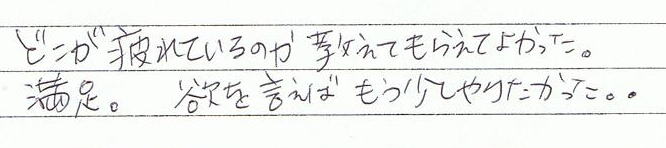 どこが疲れているのか教えてもらえてよかった。
満足。 欲を言えばもう少しやりたかった。。